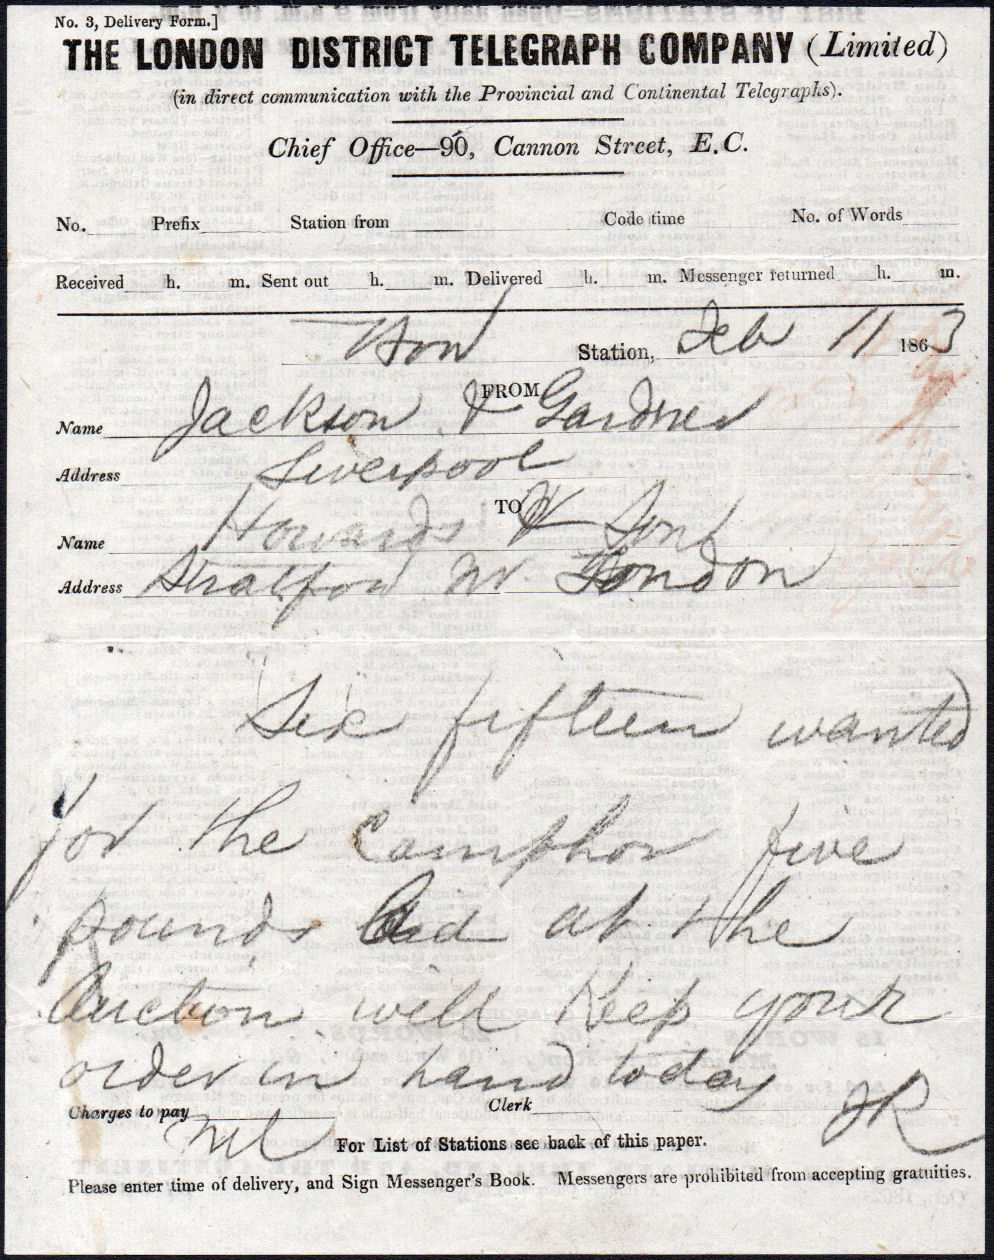 No. 3, Delivery Form.]
THE LONDON DISTRICT TELEGRAPH COMPANY (Limited)
(in direct communication with the Provincial and Continental Telegraphs).
Chief Office—90, Cannon Street, E.C.
No. Prefix Station from Code time No. of Words
Received h. m. Sent out h. m. Delivered h. m. Messenger returned h. m.
Station, Feb 11 1863
FROM
Name Jackson & Gardner
Address Liverpool
TO
Name Howards & Sons
Address Stratford Nr. London
Six fifteen wanted
for the Camphor five
pounds bid at the
Auction will keep your
order in hand today
Charges to pay Nil Clerk JR
For List of Stations see back of this paper.
Please enter time of delivery, and Sign Messenger's Book. Messengers are prohibited from accepting gratuities.